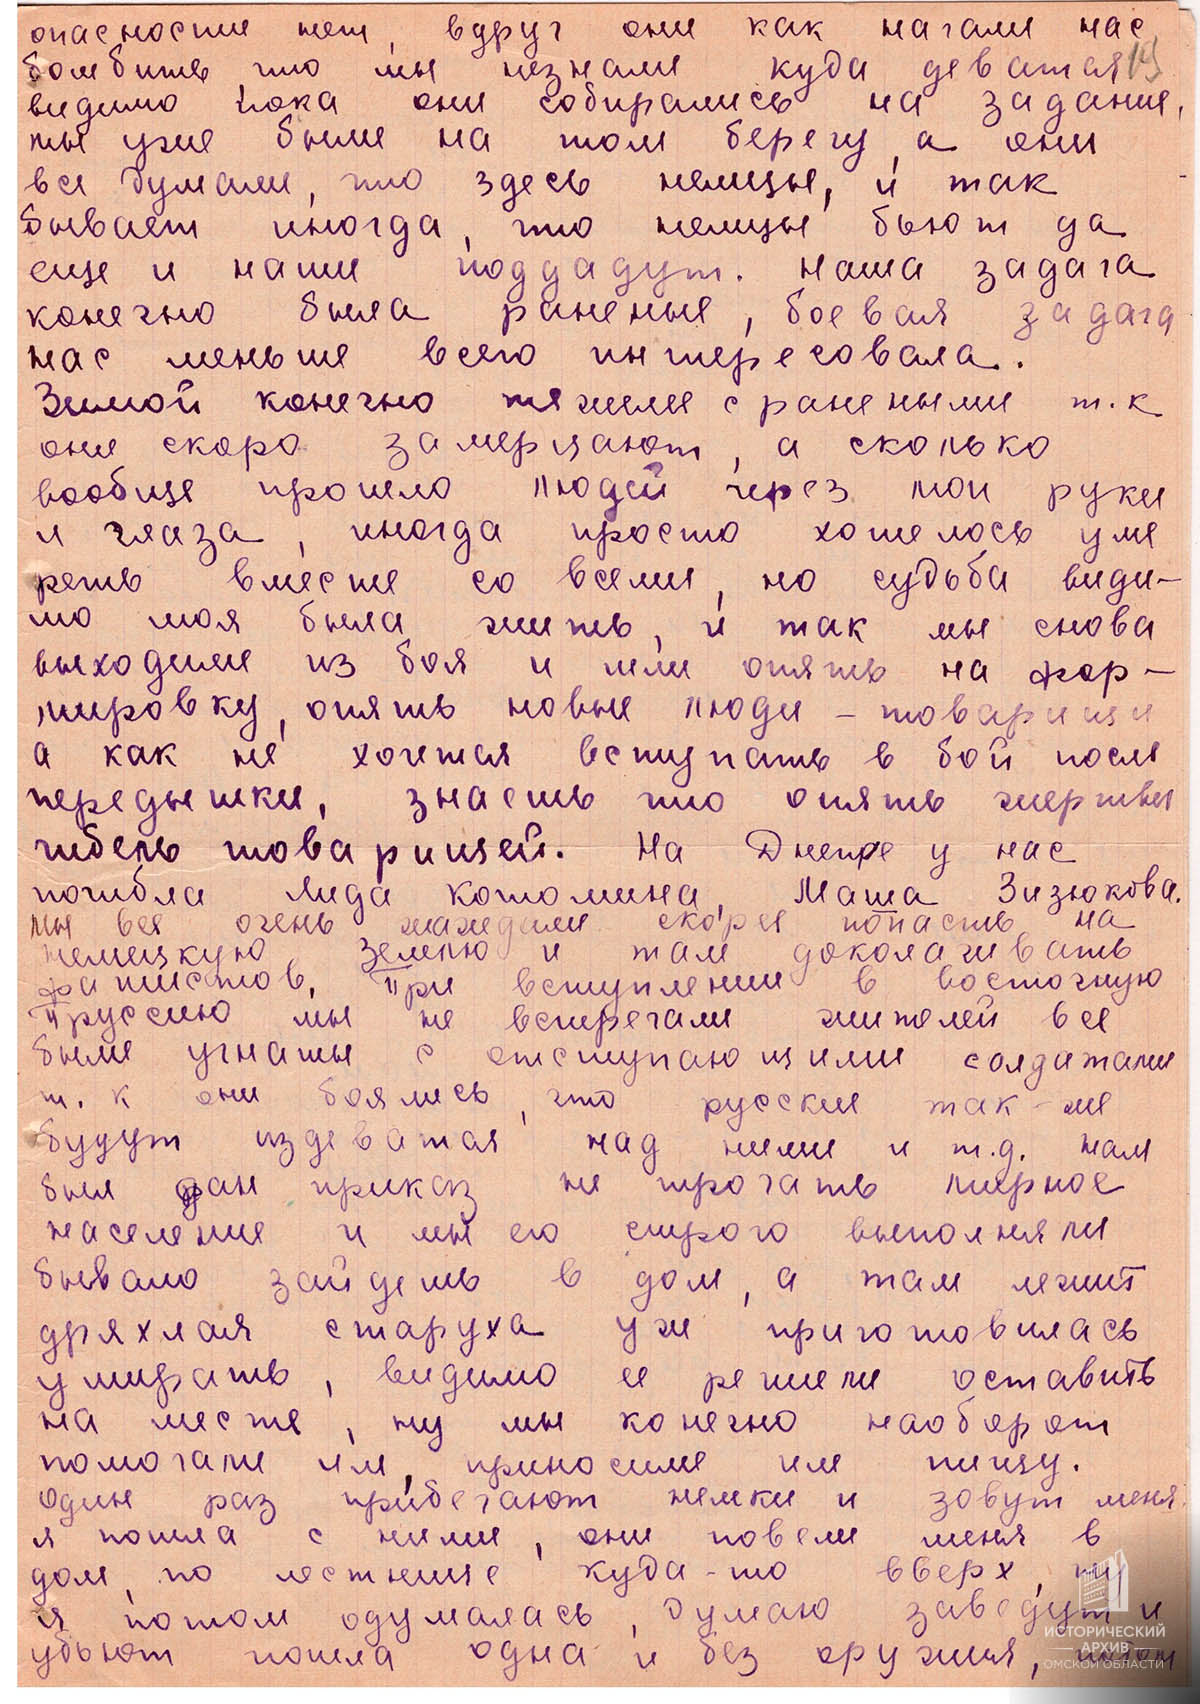 опасности нет, вдруг они как начали нас
бомбить что мы незнали куда деватся
видимо пока они собирались на задание,
мы уже были на том берегу, а они
все думали, что здесь немцы, и так
бывает иногда, что немцы бьют да
еще и наши поддадут. Наша задача
конечно была раненые, боевая задача
нас меньше всего интересовала.
Зимой конечно тяжеле с ранеными т.к
они скоро замерзают, а сколько
вообще прошло людей через мои руки
и глаза, иногда просто хотелось уме
реть вместе со всеми, но судьба види-
мо моя была жить, и так мы снова
выходили из боя и шли опять на фор-
мировку, опять новые люди - товарищи
а как не хочется вступать в бой после
передышки, знаешь что опять жертвы
гибель товарищей. На Днепре у нас
погибла Лида Котомина, Маша Зизюкова.
Мы все очень жаждали скорее попасть на
немецкую землю и там доколачивать
фашистов. При вступлении в восточную
Пруссию мы не встречали жителей все
были угнаты с отступающими солдатами
т.к они боялись, что русские так-же
будут издеватся над ними и т.д. нам
был дан приказ не трогать мирное
население и мы его строго выполняли
бывало зайдешь в дом, а там лежит
дряхлая старуха уж приготовилась
умирать, видимо ее решили оставить
на месте, ну мы конечно наоборот
помогали им, приносили им пищу.
Один раз прибегают немки и зовут меня
я пошла с ними, они повели меня в
дом, по лестнице куда-то вверх, ну
я потом одумалась, думаю заведут и
убьют пошла одна и без оружия, потом
19
ИСТОРИЧЕСКИЙ
АРХИВ
ОМСКОЙ ОБЛАСТИ